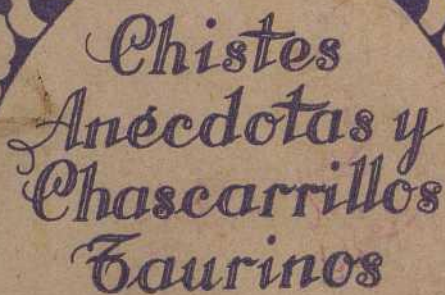 Chistes
Anécdotas y
Chascarrillos
Taurinos